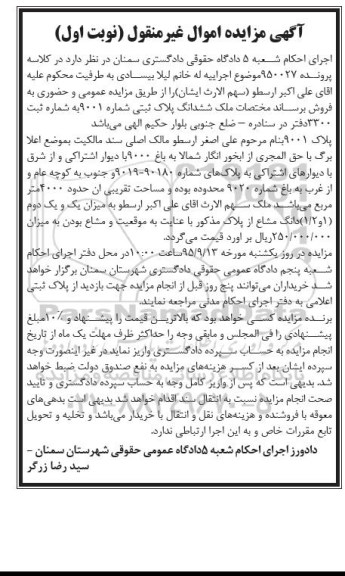 آگهی مزایده اموال غیرمنقول (نوبت اول)
اجرای احکام شعبه ۵ دادگاه حقوقی دادگستری سمنان در نظر دارد در کلاسه
پرونده ۹۵۰۰۲۷موضوع اجراییه له خانم لیلا بیسادی به طرفیت محکوم علیه
اقای علی اکبر ارسطو (سهم الارث ایشان)را از طریق مزایده عمومی و حضوری به
فروش برساند مختصات ملک ششدانگ پلاک ثبتی شماره ۹۰۰۱به شماره ثبت
۳۳۰۰دفتر در سنادره – ضلع جنوبی بلوار حکیم الهی می‌باشد
پلاک ۹۰۰۱بنام مرحوم علی اصغر ارسطو مالک اصلی سند مالکیت بموضع اعلا
برگ با حق المجری از ابخور انگار شمالا به باغ ۹۰۰۰با دیوار اشتراکی و از شرق
با دیوارهای اشتراکی به پلاک‌های شماره ۹۰۱۸۰-۹۰۱۹و جنوب به کوچه عام و
از غرب به باغ شماره ۹۰۲۰ محدوده بوده و مساحت تقریبی ان حدود ۴۰۰۰متر
مربع می‌باشد ملک سهم الارث اقای علی اکبر ارسطو به میزان یک و یک دوم
(۱و۱/۲)دانگ مشاع از پلاک مذکور با عنایت به موقعیت و مشاع بودن به میزان
۲۵۰/۰۰۰/۰۰۰ریال بر اورد قیمت می‌گردد.
مزایده در روز یکشنبه مورخه ۹۵/۹/۱۳ساعت ۱۰:۰۰در محل دفتر اجرای احکام
شعبه پنجم دادگاه عمومی حقوقی دادگستری شهرستان سمنان برگزار خواهد
شد خریداران می‌توانند پنج روز قبل از انجام مزایده جهت بازدید از پلاک ثبتی
اعلامی به دفتر اجرای احکام مدنی مراجعه نمایند.
برنده مزایده کسی خواهد بود که بالاترین قیمت را پیشنهاد و ۱۰٪مبلغ
پیشنهادی را فی المجلس و مابقی وجه را حداکثر ظرف مهلت یک ماه از تاریخ
انجام مزایده به حساب سپرده دادگستری واریز نماید در غیر اینصورت وجه
سپرده ایشان بعد از کسر هزینه‌های مزایده به نفع صندوق دولت ضبط خواهد
شد. بدیهی است که پس از واریز کامل وجه به حساب سپرده دادگستری و تایید
صحت انجام مزایده نسبت به انتقال سند اقدام خواهد شد بدیهی است بدهی‌های
معوقه با فروشنده و هزینه‌های نقل و انتقال با خریدار می‌باشد و تخلیه و تحویل
تابع مقررات خاص و به این اجرا ارتباطی ندارد.
دادورز اجرای احکام شعبه ۵دادگاه عمومی حقوقی شهرستان سمنان –
سید رضا زرگر